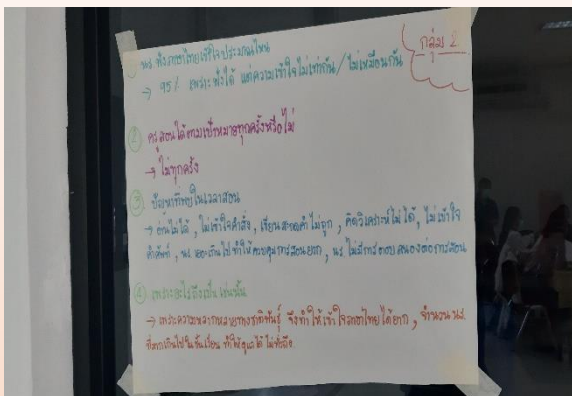 กลุ่ม 2
① นร. ฟังภาษาไทยเข้าใจประมาณไหน
→ 95% เพราะฟังได้ แต่ความเข้าใจไม่เท่ากัน / ไม่เหมือนกัน
② ครูสอนได้ตามเป้าหมายทุกครั้งหรือไม่
→ ไม่ทุกครั้ง
③ ปัญหาที่พบในเวลาสอน
→ อ่านไม่ได้, ไม่เข้าใจคำสั่ง, เขียนสะกดคำไม่ถูก, คิดวิเคราะห์ไม่ได้, ไม่เข้าใจ
คำศัพท์, นร. เยอะเกินไปทำให้ควบคุมการสอนยาก, นร. ไม่มีการตอบสนองต่อการสอน
④ เพราะอะไรถึงเป็นเช่นนั้น
→ เพราะความหลากหลายทางชาติพันธุ์ จึงทำให้เข้าใจภาษาไทยได้ยาก, จำนวน นร.
ที่มากเกินไปในชั้นเรียน ทำให้ดูแลได้ไม่ทั่วถึง